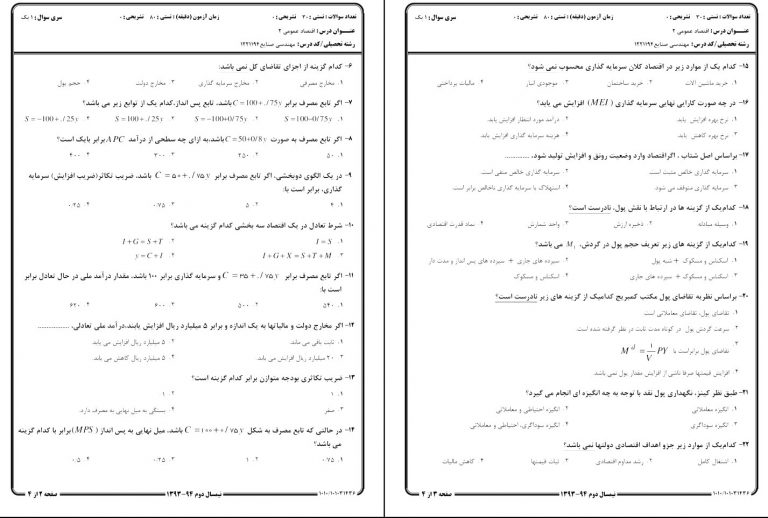 تعداد سوالات : تستی : ۳۰ تشریحی : ۰
زمان آزمون (دقیقه) : تستی : ۸۰ تشریحی : ۰
سری سوال : ۱ یک
عنـــوان درس : اقتصاد عمومی ۲
رشته تحصیلی/کد درس : مهندسی صنایع ۱۲۲۱۱۹۴
۶- کدام گزینه از اجزای تقاضای کل نمی باشد:
۱. مخارج مصرفی ۲. مخارج سرمایه گذاری ۳. مخارج دولت ۴. حجم پول
۷- اگر تابع مصرف برابر C = 100 + ./75y باشد، تابع پس انداز،کدام یک از توابع زیر می باشد؟
۱. S = 100-0/75y ۲. S = -100+0/75y ۳. S = 100+./25y ۴. S = -100+./25y
۸- اگر تابع مصرف به صورت C = 50+0/8y باشد،به ازای چه سطحی از درآمد APC برابر بایک است؟
۱. ۵۰ ۲. ۲۵۰ ۳. ۳۰۰ ۴. ۴۰۰
۹- در یک الگوی دوبخشی، اگر تابع مصرف برابر C = ۵۰ + ۰/۷۵y باشد، ضریب تکاثر(ضریب افزایش) سرمایه
گذاری، برابر است با:
۱. ۴ ۲. ۵ ۳. ۰.۷۵ ۴. ۰.۲۵
۱۰- شرط تعادل در یک اقتصاد سه بخشی کدام گزینه می باشد؟
۱. I = S ۲. I + G = S + T
۳. I + G + X = S + T + M ۴. y = C + I
۱۱- اگر تابع مصرف برابر C = ۳۵ + ۰/۷۵y و سرمایه گذاری برابر ۱۰۰ باشد، مقدار درآمد ملی در حال تعادل برابر
است با:
۱. ۵۴۰ ۲. ۵۰۰ ۳. ۶۰۰ ۴. ۶۲۰
۱۲- اگر مخارج دولت و مالیاتها به یک اندازه و برابر ۵ میلیارد ریال افزایش یابند،درآمد ملی تعادلی، ................
۱. ثابت باقی می ماند. ۲. ۵ میلیارد ریال افزایش می یابد.
۳. ۲۰ میلیارد ریال افزایش می یابد. ۴. ۵ میلیارد ریال کاهش می یابد.
۱۳- ضریب تکاثری بودجه متوازن برابر کدام گزینه است؟
۱. ۱ ۲. ۱
۳. صفر ۴. بستگی به میل نهایی به مصرف دارد.
۱۴- در حالتی که تابع مصرف به شکل C = ۱۰۰ + ۰/۷۵y باشد، میل نهایی به پس انداز (MPS) برابر با کدام گزینه
می باشد؟
۱. ۰.۷۵ ۲. ۱ ۳. ۰.۲۵ ۴. ۰.۵
نیمسال دوم ۹۴-۱۳۹۳
صفحه ۲ از ۴
تعداد سوالات : تستی : ۳۰ تشریحی : ۰
زمان آزمون (دقیقه) : تستی : ۸۰ تشریحی : ۰
سری سوال : ۱ یک
عنـــوان درس : اقتصاد عمومی ۲
رشته تحصیلی/کد درس : مهندسی صنایع ۱۲۲۱۱۹۴
۱۵- کدام یک از موارد زیر در اقتصاد کلان سرمایه گذاری محسوب نمی شود؟
۱. خرید ماشین آلات ۲. خرید ساختمان ۳. موجودی انبار ۴. مالیات پرداختی
۱۶- در چه صورت کارایی نهایی سرمایه گذاری (MEI) افزایش می یابد؟
۱. نرخ بهره افزایش یابد. ۲. درآمد مورد انتظار افزایش یابد.
۳. نرخ بهره کاهش یابد. ۴. هزینه سرمایه گذاری افزایش یابد.
۱۷- براساس اصل شتاب ، اگراقتصاد وارد وضعیت رونق و افزایش تولید شود، .............
۱. سرمایه گذاری خالص مثبت است. ۲. سرمایه گذاری خالص منفی است.
۳. سرمایه گذاری متوقف می شود. ۴. استهلاک با سرمایه گذاری ناخالص برابر است.
۱۸- کدام یک از گزینه ها در ارتباط با نقش پول، نادرست است؟
۱. وسیله مبادله ۲. ذخیره ارزش ۳. واحد شمارش ۴. نماد قدرت اقتصادی
۱۹- کدام یک از گزینه های زیر تعریف حجم پول در گردش، M₁ می باشد؟
۱. اسکناس و مسکوک + شبه پول ۲. سپرده های جاری + سپرده های پس انداز و مدت دار
۳. اسکناس و مسکوک + سپرده های جاری ۴. اسکناس و مسکوک
۲۰- براساس نظریه تقاضای پول مکتب کمبریج کدامیک از گزینه های زیر نادرست است؟
۱. تقاضای پول، تقاضای معاملاتی است
۲. سرعت گردش پول در کوتاه مدت ثابت در نظر گرفته شده است.
۳. تقاضای پول برابراست با M^d = 1/V PY
۴. افزایش قیمتها صرفا ناشی از افزایش مقدار پول نمی باشد.
۲۱- طبق نظر کینز، نگهداری پول نقد با توجه به چه انگیزه ای انجام می گیرد؟
۱. انگیزه معاملاتی ۲. انگیزه احتیاطی و معاملاتی
۳. انگیزه سوداگری ۴. انگیزه سوداگری، احتیاطی و معاملاتی
۲۲- کدام یک از موارد زیر جزو اهداف اقتصادی دولتها نمی باشد؟
۱. اشتغال کامل ۲. رشد مداوم اقتصادی ۳. ثبات قیمتها ۴. کاهش مالیات
نیمسال دوم ۹۴-۱۳۹۳
صفحه ۳ از ۴